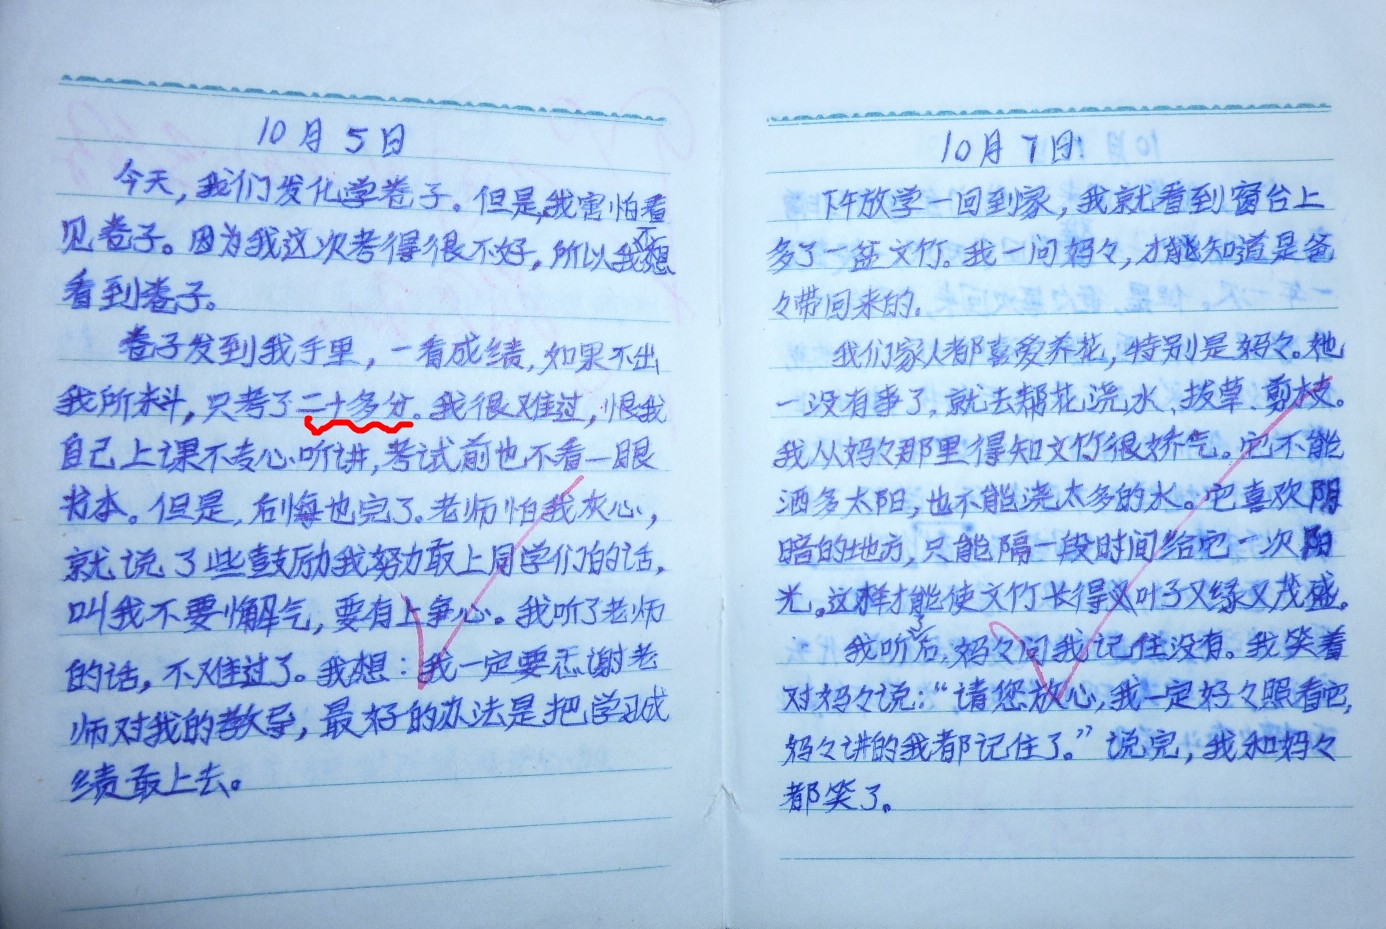 10月5日
今天，我们发化学卷子。但是，我害怕看
见卷子。因为我这次考得很不好，所以我不想
看到卷子。
卷子发到我手里，一看成绩，如果不出
我所料，只考了二十多分。我很难过，恨我
自己上课不专心听讲，考试前也不看一眼
书本。但是，后悔也完了。老师怕我灰心，
就说了些鼓励我努力敢上同学们的话，
叫我不要懈气，要有上争心。我听了老师
的话，不难过了。我想：我一定要感谢老
师对我的教导，最好的办法是把学习成
绩敢上去。
10月7日
下午放学一回到家，我就看到窗台上
多了一盆文竹。我一问妈々，才能知道是爸
々带回来的。
我们家人都喜爱养花，特别是妈々。她
一没有事了，就去帮花浇水、拔草、剪枝。
我从妈々那里得知文竹很娇气。它不能
洒多太阳，也不能浇太多的水。它喜欢阴
暗的地方，只能隔一段时间给它一次阳
光。这样才能使文竹长得叶子又绿又茂盛。
我听后，妈々问我记住没有。我笑着
对妈々说：“请您放心，我一定好々照看它，
妈々讲的我都记住了。”说完，我和妈々
都笑了。